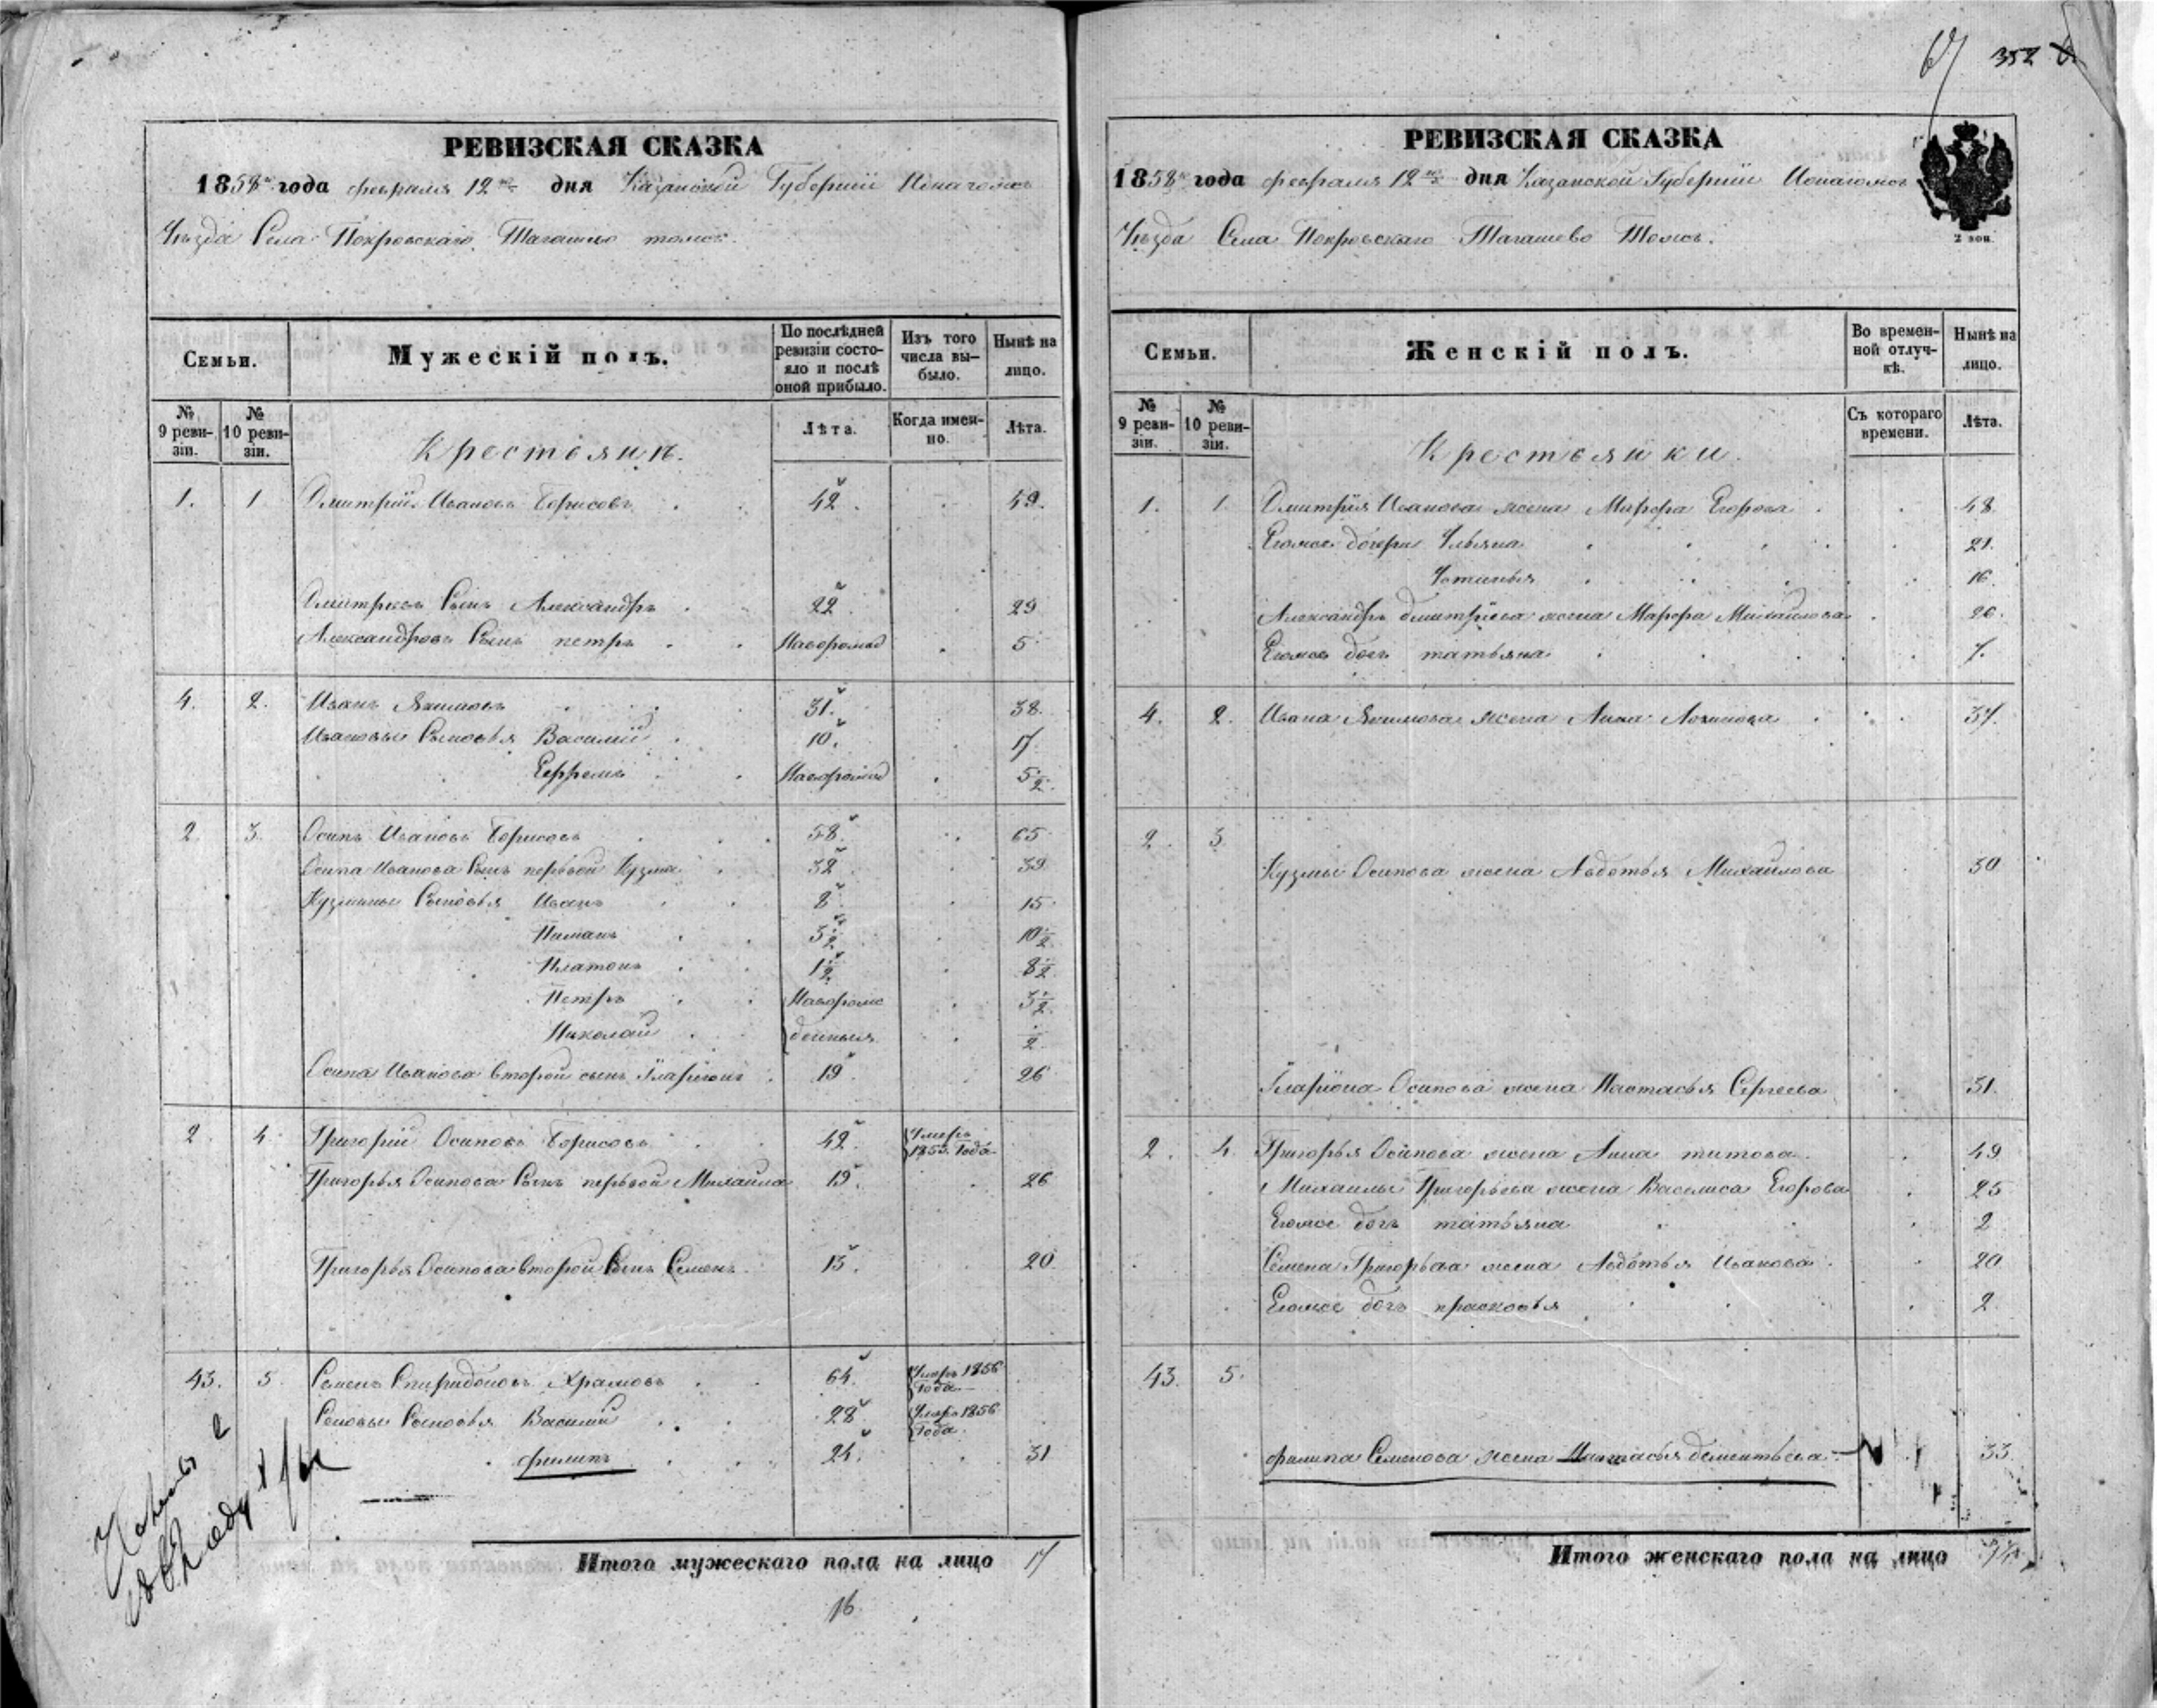 67 352
РЕВИЗСКАЯ СКАЗКА
1858 года февраля 12 дня Казанской Губернии
Уѣзда Села Покровскаго Тагашево тожъ.
Семьи.
Мужескій полъ.
По послѣдней ревизіи состояло и послѣ оной прибыло.
Изъ того числа выбыло.
Нынѣ на лицо.
№ 9 ревизіи.
№ 10 ревизіи.
Крестьянъ.
Лѣта.
Когда именно.
Лѣта.
1. 1 Дмитрий Ивановъ Борисовъ 42. 49.
Дмитриевъ Сынъ Александръ 22. 29
Александровъ Сынъ петръ Наворожд 5
4. 2. Иванъ Якимовъ 31. 38.
Ивановы Сыновья Василий 10. 17
Ефремъ Наворожд 5 1/2.
2. 3. Осипъ Ивановъ Борисовъ 58. 65
Осипа Иванова Сынъ первой Кузма 32 39
Кузмины Сыновья Иванъ 8 15
Пиманъ 3 1/2 10 1/2
Платонъ 1 1/2 8 1/2
Петръ Наворож 3 1/2
Николай денныя 1/2
Осипа Иванова второй сынъ Іларіонъ 19. 26
2 4. Григорий Осиповъ Борисовъ 42. Умеръ 1855. Года
Григорья Осипова Сынъ первой Михаила 19. 26
Григорья Осипова второй Сынъ Семенъ 13. 20
43. 5. Семенъ Спиридоновъ Храмовъ 64. Умеръ 1856 Года
Сыновья Василий 28 Умеръ 1856 Года.
филипъ 24. 31
Итого мужескаго пола на лицо 17
16
РЕВИЗСКАЯ СКАЗКА
1858 года февраля 12 дня Казанской Губернии
Уѣзда Села Покровскаго Тагашево Тожъ.
2 коп
Семьи.
Женскій полъ.
Во временной отлучкѣ.
Нынѣ на лицо.
№ 9 ревизіи.
№ 10 ревизіи.
Крестьянки.
Съ котораго времени.
Лѣта.
1. 1. Дмитрия Иванова жена Марфа Егорова 48
Егожее дочери Ульяна 21.
Устинья 16.
Александръ дмитріева жена Марфа Михайлова 26.
Егоже дочь татьяна 7.
4. 2. Ивана Якимова жена Анна 37.
2. 3 Кузмы Осипова жена Авдотья Михайлова 30
Іларіона Осипова жена Настасья Сергеева 31.
2. 4. Григорья Осипова жена Анна титова 49
Михаилы Григорьева жена Василиса Егорова 25
Егоже дочь татьяна 2
Семена Григорьева жена Авдотья Иванова 20
Егоже дочь прасковья 2
43. 5. филипа Семенова жена Настасья дементьева 33
Итого женскаго пола на лицо